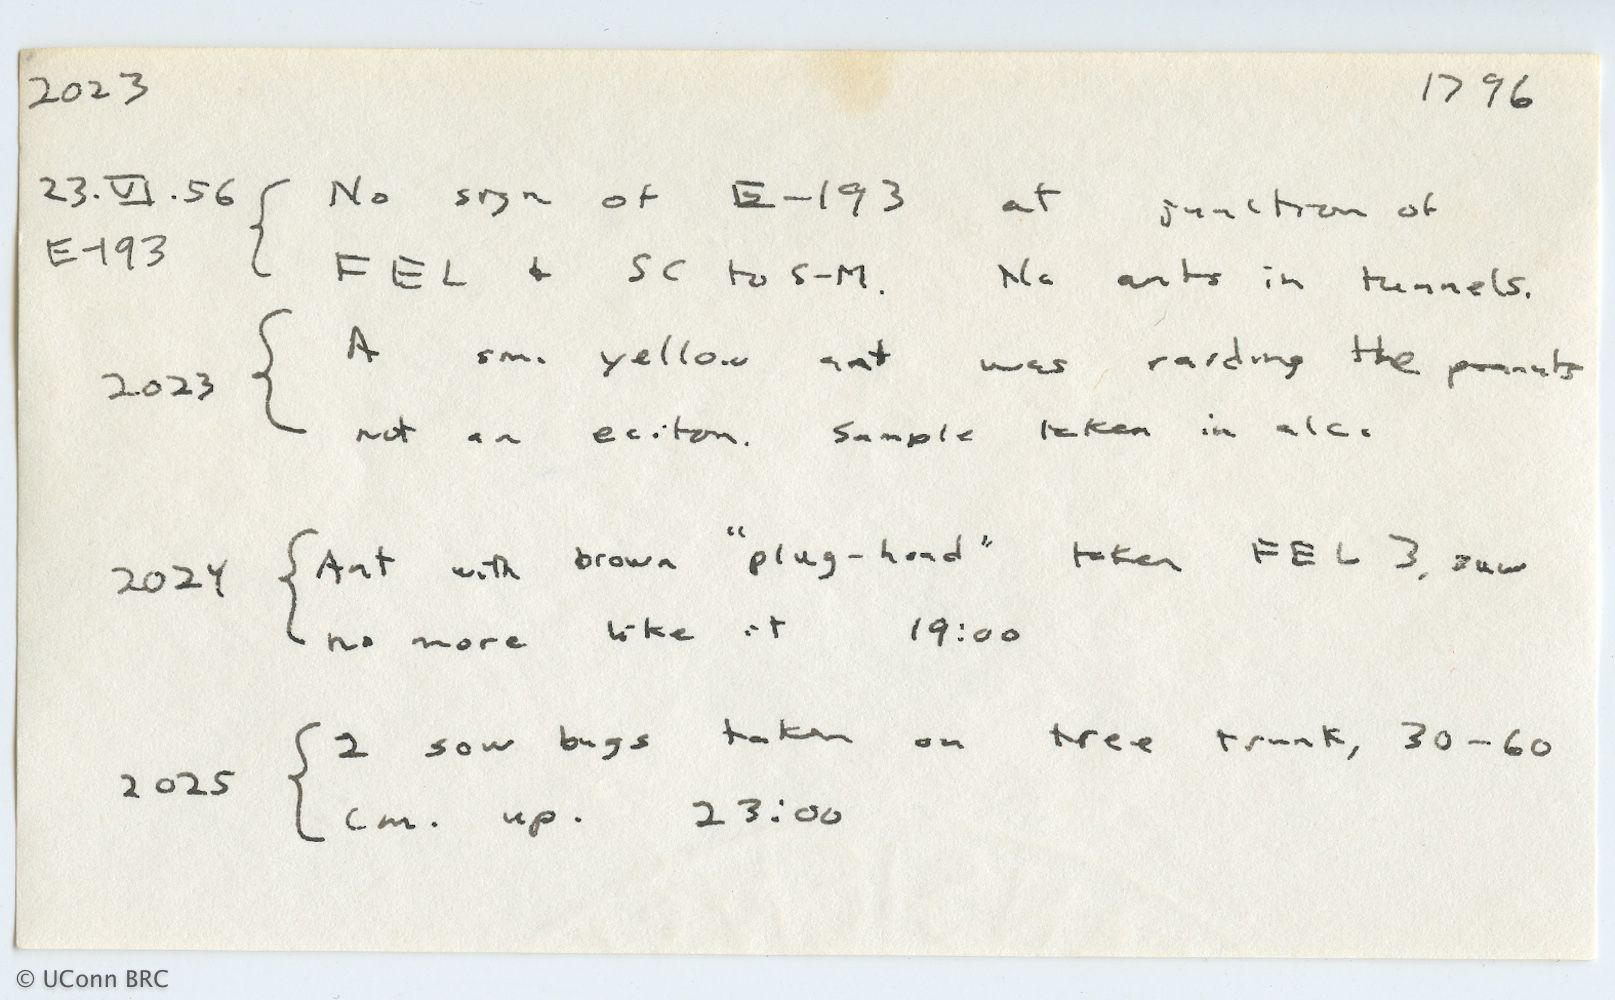 2023 1796
23.VI.56 No sign of E-193 at junction of
E-193 FEL & SC to S-M. No ants in tunnels.
A sm. yellow ant was raiding the peanuts
2023
not an eciton. Sample taken in alc.
Ant with brown "plug-head" taken FEL 3, saw
2024
no more like it 19:00
2 sow bugs taken on tree trunk, 30-60
2025
cm. up. 23:00
© UConn BRC